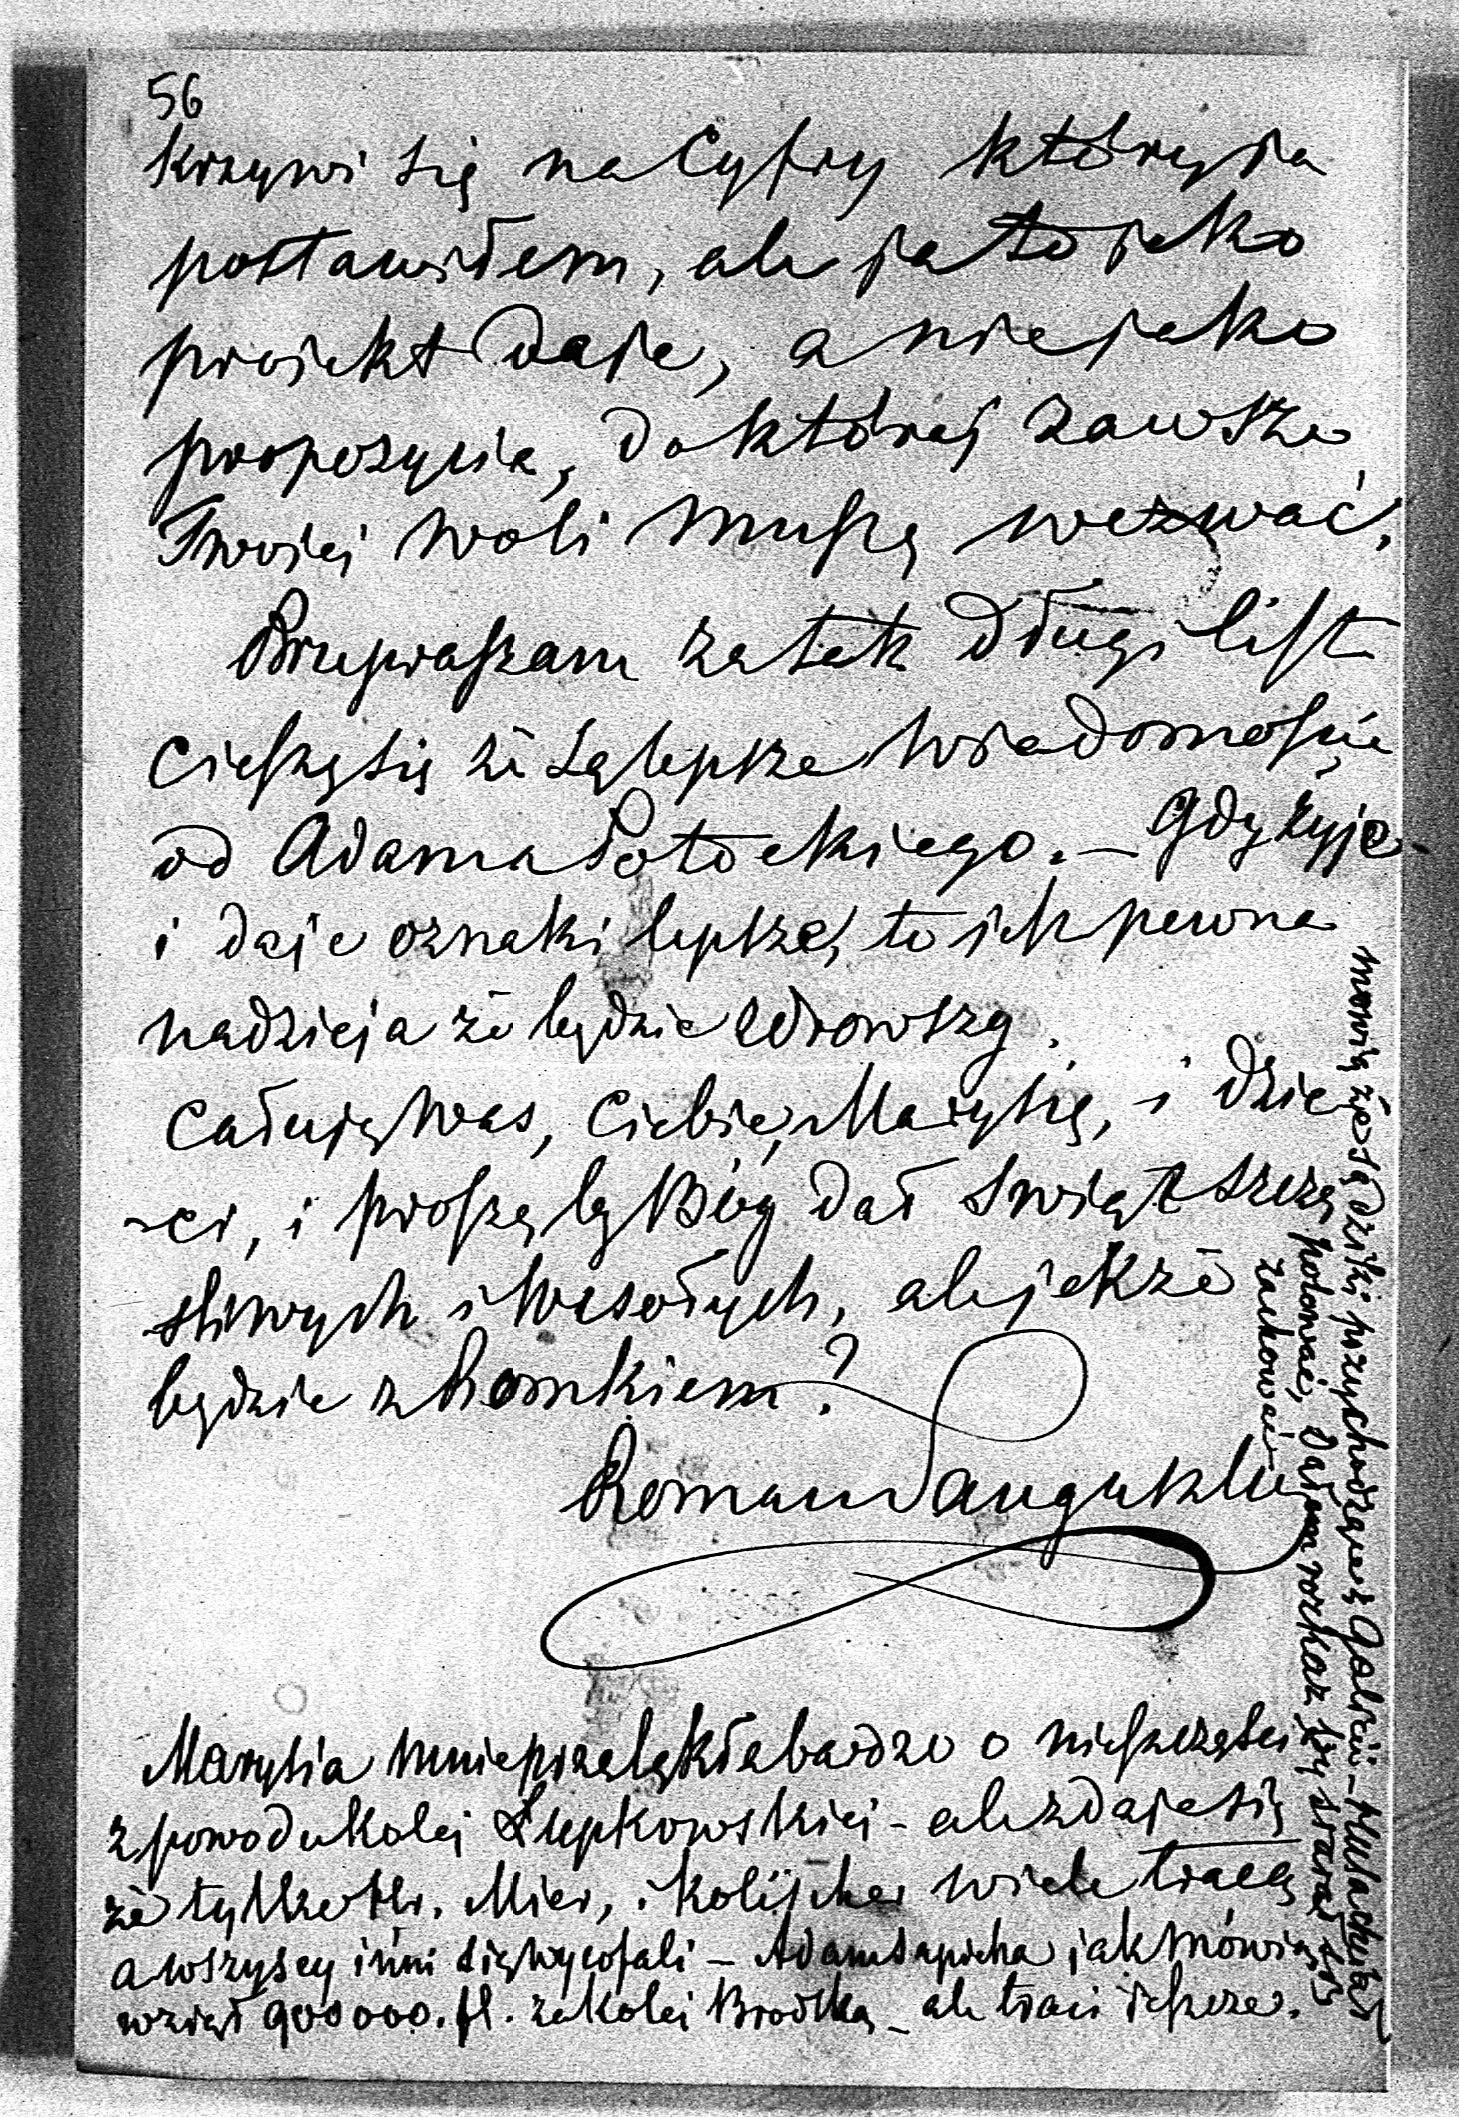 56
krzywi się na Cyfry którą ja
postawiłem, ale ja to jako
projekt daje, a nie jako
propozycia, do której zawsze
Twojej woli muszę wezwać.
Przepraszam za tak długi list
cieszę się że są lepsze wiadomoście
od Adama Potockiego. — Gdy żyje
i daje oznaki lepsze, to jest pewna
nadzieja że będzie zdrowszy.
Całuję Was, Ciebie, Marysię, i dzie
-ci, i proszę by Bóg dał świąt szczę
śliwych i wesołych, ale jakże
będzie z Romkiem?
Roman Sanguszko
Marysia mnie przelękła bardzo o nieszczęści
z powodu kolej Łupkowskiej - ale zdaje się
że tylko Hr. Mier, i Kolischer wiele tracą
a wszyscy inni się wycofali — Adam Sapieha jak mówią
wziął 900 000. fl. za kolej Brodską — ale traci jeszcze.
mówią że są dziki przychodzące z Galicii —
polować, Dałem rozkaz by starać się
zachować